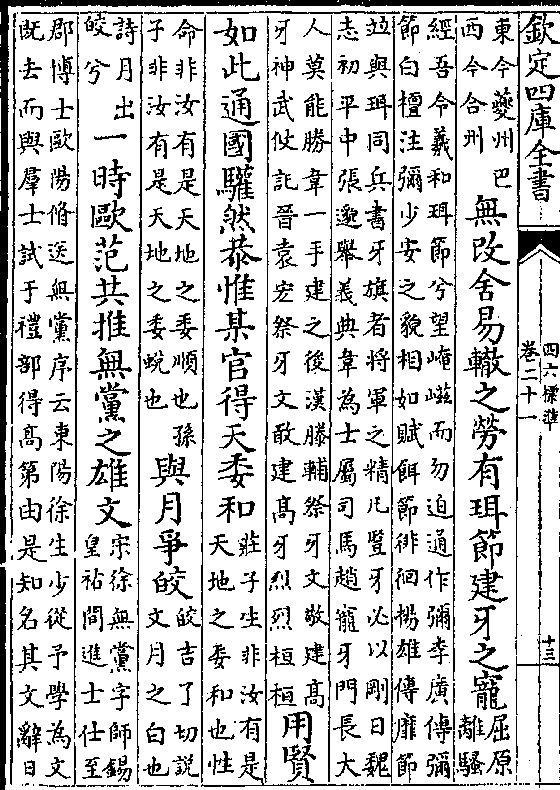 欽定四庫全書
四六標準
卷二十一
十三
東今夔州巴
西今合州
無改舍易轍之勞有珥節建牙之寵
屈原
離騷
經吾令羲和珥節兮望崦嵫而勿迫通作彌李廣傳彌
節白檀注彌少安之貌相如賦餌節徘徊楊雄傳靡節
竝與珥同兵書牙旗者將軍之精凡豎牙必以剛日魏
志初平中張邈舉義典韋為士屬司馬趙寵牙門長大
人莫能勝韋一手建之後漢滕輔祭牙文敬建高
牙神武攸託晉袁宏祭牙文敢建高牙烈烈桓桓
用賢
如此通國驩然恭惟某官得天委和
莊子生非汝有是
天地之委和也性
命非汝有是天地之委順也孫
子非汝有是天地之委蛻也
與月爭皎
皎吉了切說
文月之白也
詩月出
皎兮
一時歐范共推無黨之雄文
宋徐無黨字師錫
皇祐間進士仕至
郡博士歐陽脩送無黨序云東陽徐生少從予學為文
既去而與羣士試于禮部得高第由是知名其文辭日